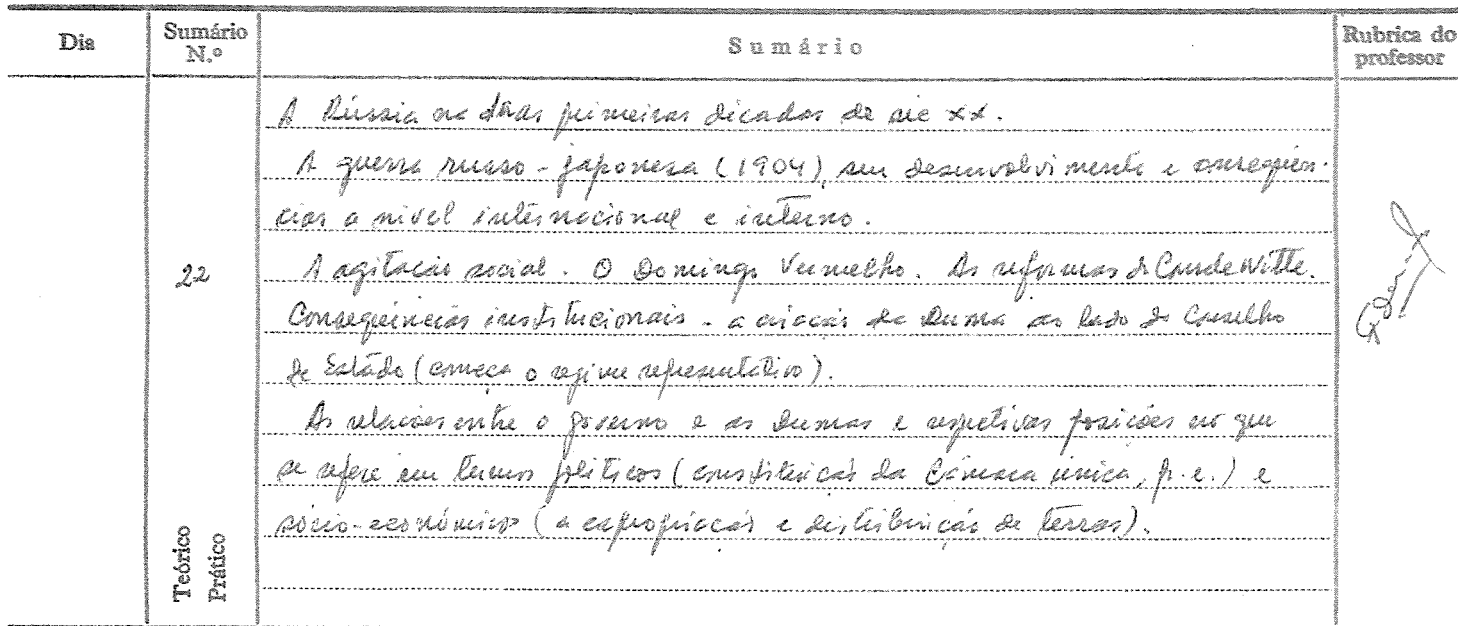 Dia
Sumário N.º
Sumário
Rubrica do professor
A Rússia nas duas primeiras décadas do séc XX.
A guerra russo-japonesa (1904), seu desenvolvimento e consequên-
cias a nível internacional e interno.
22
A agitação social. O Domingo Vermelho. As reformas do Conde Witte.
Consequências institucionais - a criação da Duma ao lado do Conselho
de Estado (começa o regime representativo).
As relações entre o governo e as Dumas e respetivas posições no que
se refere em termos políticos (constituição da Câmara única, p.e.) e
sócio-económicos (a expropriação e distribuição de terras).
Teórico
Prático